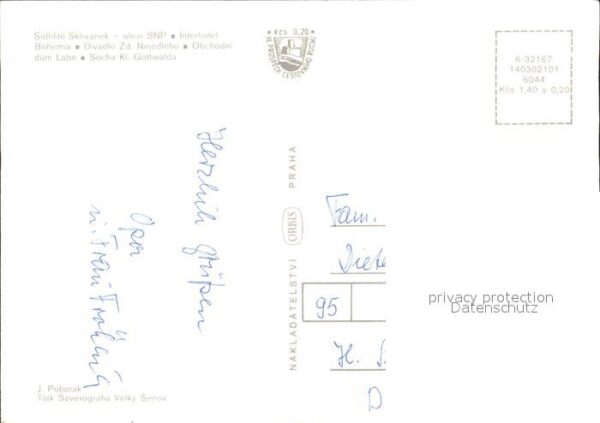 Sídliště Skřivánek – ulice SNP • Interhotel
Bohemia • Divadlo Zd. Nejedlého • Obchodní
dům Labe • Socha Kl. Gottwalda
Kčs 0,20
VE PROSPĚCH CESTOVNÍHO RUCHU
6 32167
140302101
6044
Kčs 1,40 a 0,20
Herzlich grüßen
Opa
u. Frau
NAKLADATELSTVÍ ORBIS PRAHA
Fam.
Diete
95
H. S.
D
privacy protection
Datenschutz
J. Poborák
Tisk Severografia Velký Šenov